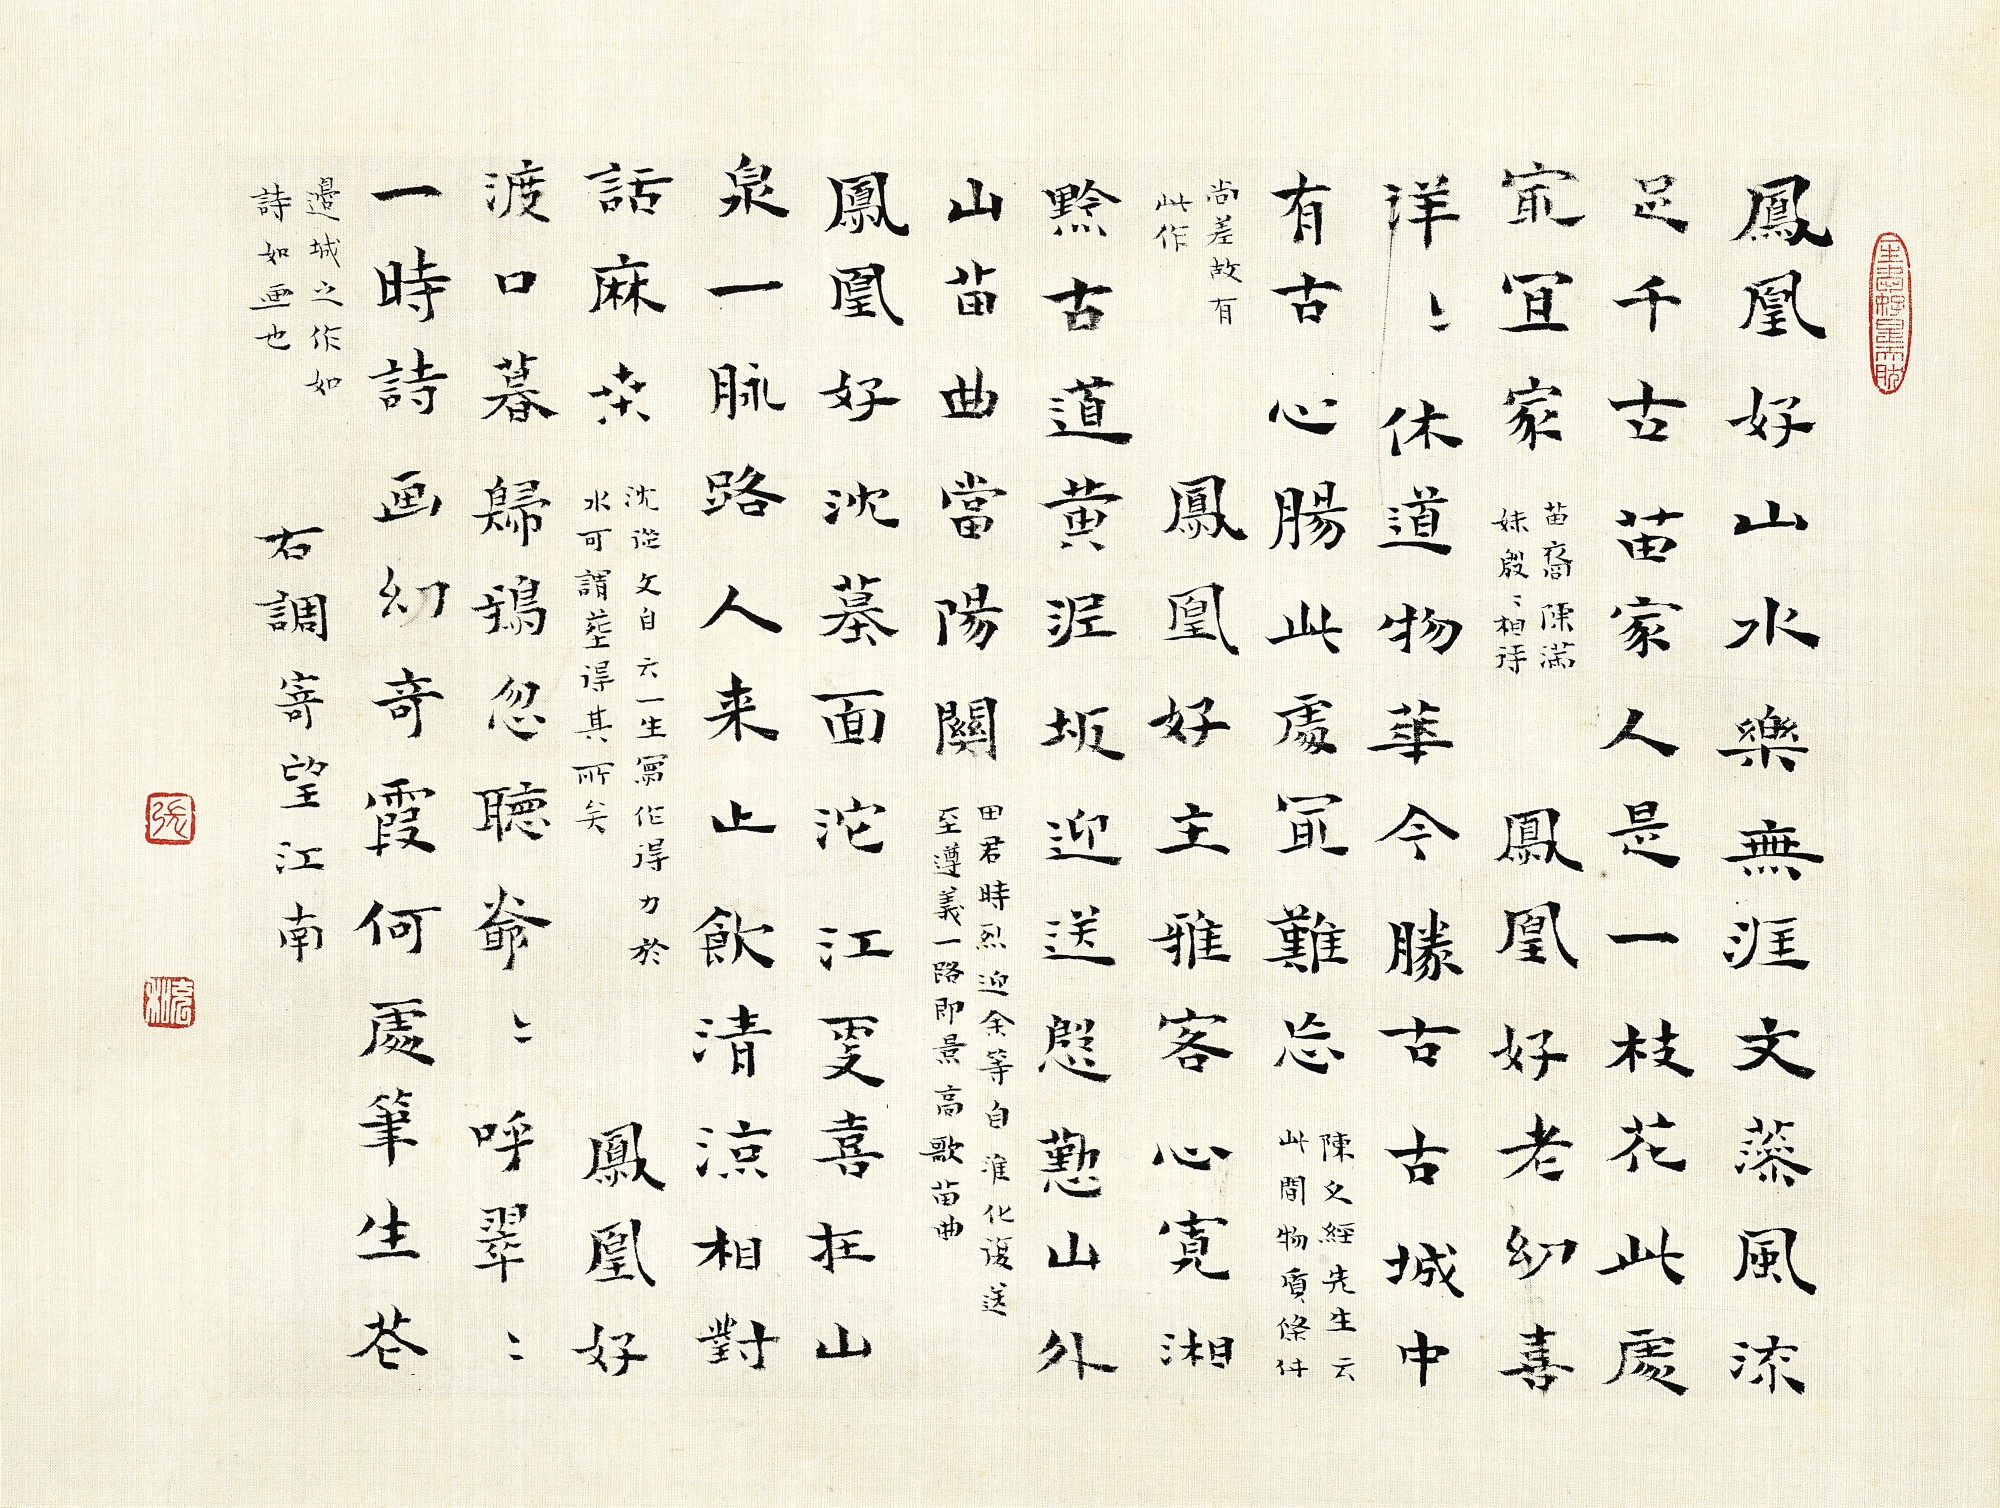 鳳凰好山水樂無涯文藻風流
足千古苗家人是一枝花此處
冣宜家
苗裔陳滿
妹殷〻相待
鳳凰好老幼喜
洋〻休道物華今勝古古城中
有古心腸此處冣難忘
陳文經先生云
此間物質條件
尚差故有
此作
鳳凰好主雅客心寬湘
黔古道黄泥坂迎送慇懃山外
山苗曲當陽關
田君時烈迎余等自淮化復送
至遵義一路即景高歌苗曲
鳳凰好沈墓面沱江叓喜在山
泉一脉路人来止飲清涼相對
話麻桒
沈從文自云一生寫作得力於
水可謂塟得其所矣
鳳凰好
渡口暮歸鴉忽聽爺〻呼翠〻
一時詩画幻奇霞何處筆生花
邊城之作如
詩如画也
右調寄望江南
張